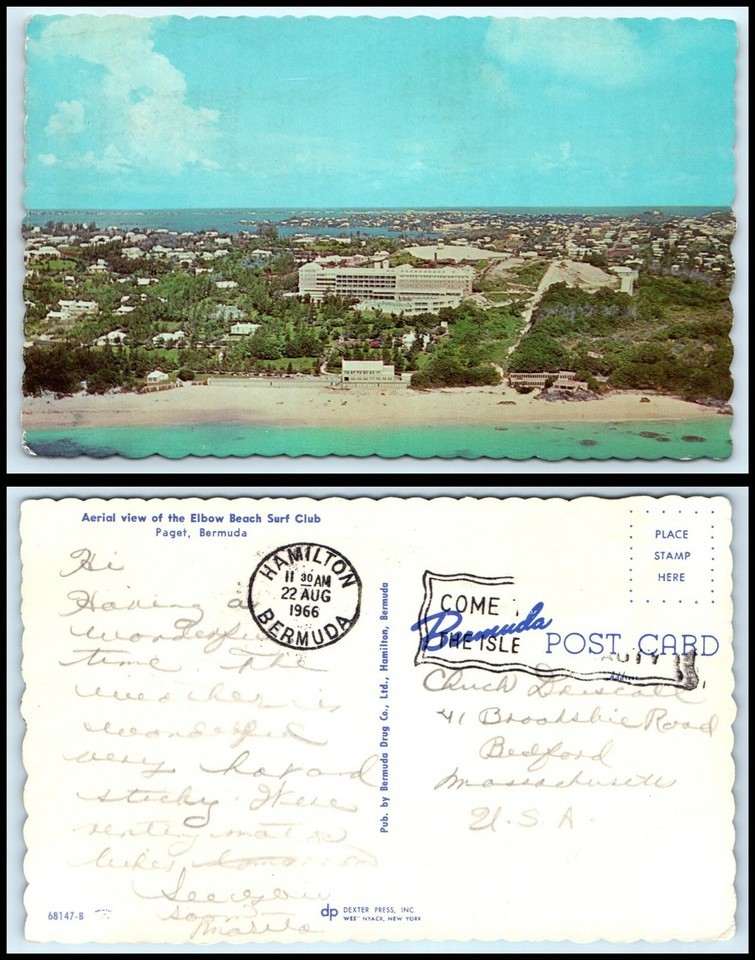 Aerial view of the Elbow Beach Surf Club
Paget, Bermuda
Hi
Having a
wonderful
time The
weather is
wonderful
very hot and
sticky. We're
renting
bikes
See you
soon
HAMILTON
11 30 AM
22 AUG
1966
BERMUDA
Pub. by Bermuda Drug Co., Ltd., Hamilton, Bermuda
PLACE
STAMP
HERE
COME
THE ISLE
Bermuda
POST CARD
Chuck Driscoll
41 Road
Bedford
Massachusetts
U.S.A.
68147-B
dp DEXTER PRESS, INC.
WEST NYACK, NEW YORK